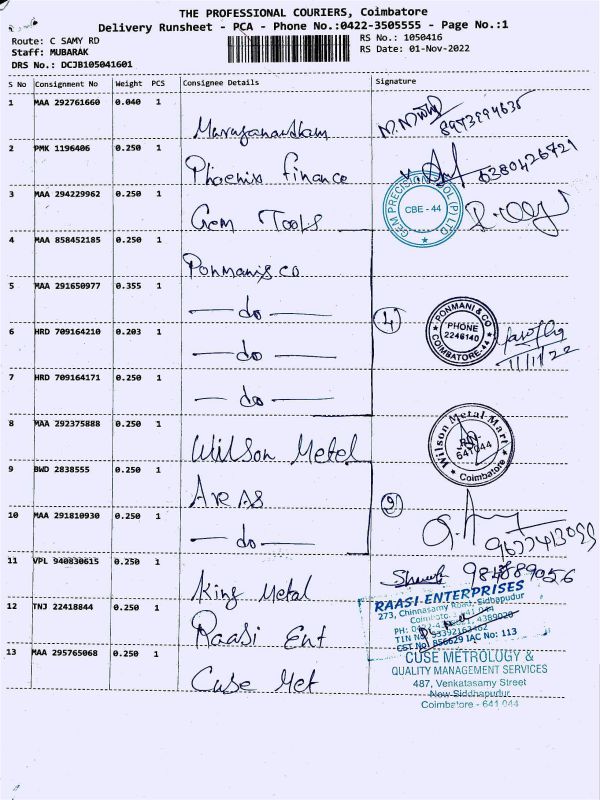 THE PROFESSIONAL COURIERS, Coimbatore
Delivery Runsheet - PCA - Phone No.:0422-3505555 - Page No.:1
Route: C SAMY RD
Staff: MUBARAK
DRS No.: DCJB105041601
RS No.: 1050416
RS Date: 01-Nov-2022
S No Consignment No Weight PCS Consignee Details Signature
1 MAA 292761660 0.040 1
8973994635
2 PMK 1196406 0.250 1 Phoenix Finance 6380426721
3 MAA 294229962 0.250 1 Gem Tools
CBE - 44
4 MAA 858452185 0.250 1 Ponmani & co
5 MAA 291650977 0.355 1 do
4
PONMANI & CO
PHONE
2246140
COIMBATORE-44
6 HRD 709164210 0.203 1 do
1/11/22
7 HRD 709164171 0.250 1 do
8 MAA 292375888 0.250 1 Wilson Metel
Wilson Metal Mart
641 044
Coimbatore
9 BWD 2838555 0.250 1 Are As
9
10 MAA 291810930 0.250 1 do
11 VPL 940830615 0.250 1 King Metal
12 TNJ 22418844 0.250 1 Raasi Ent
RAASI ENTERPRISES
273, Chinnasamy Road, Sidhapudur
13 MAA 295765068 0.250 1 Cuse Met
CUSE METROLOGY &
QUALITY MANAGEMENT SERVICES
487, Venkatasamy Street
New Siddhapudur
Coimbatore - 641 044